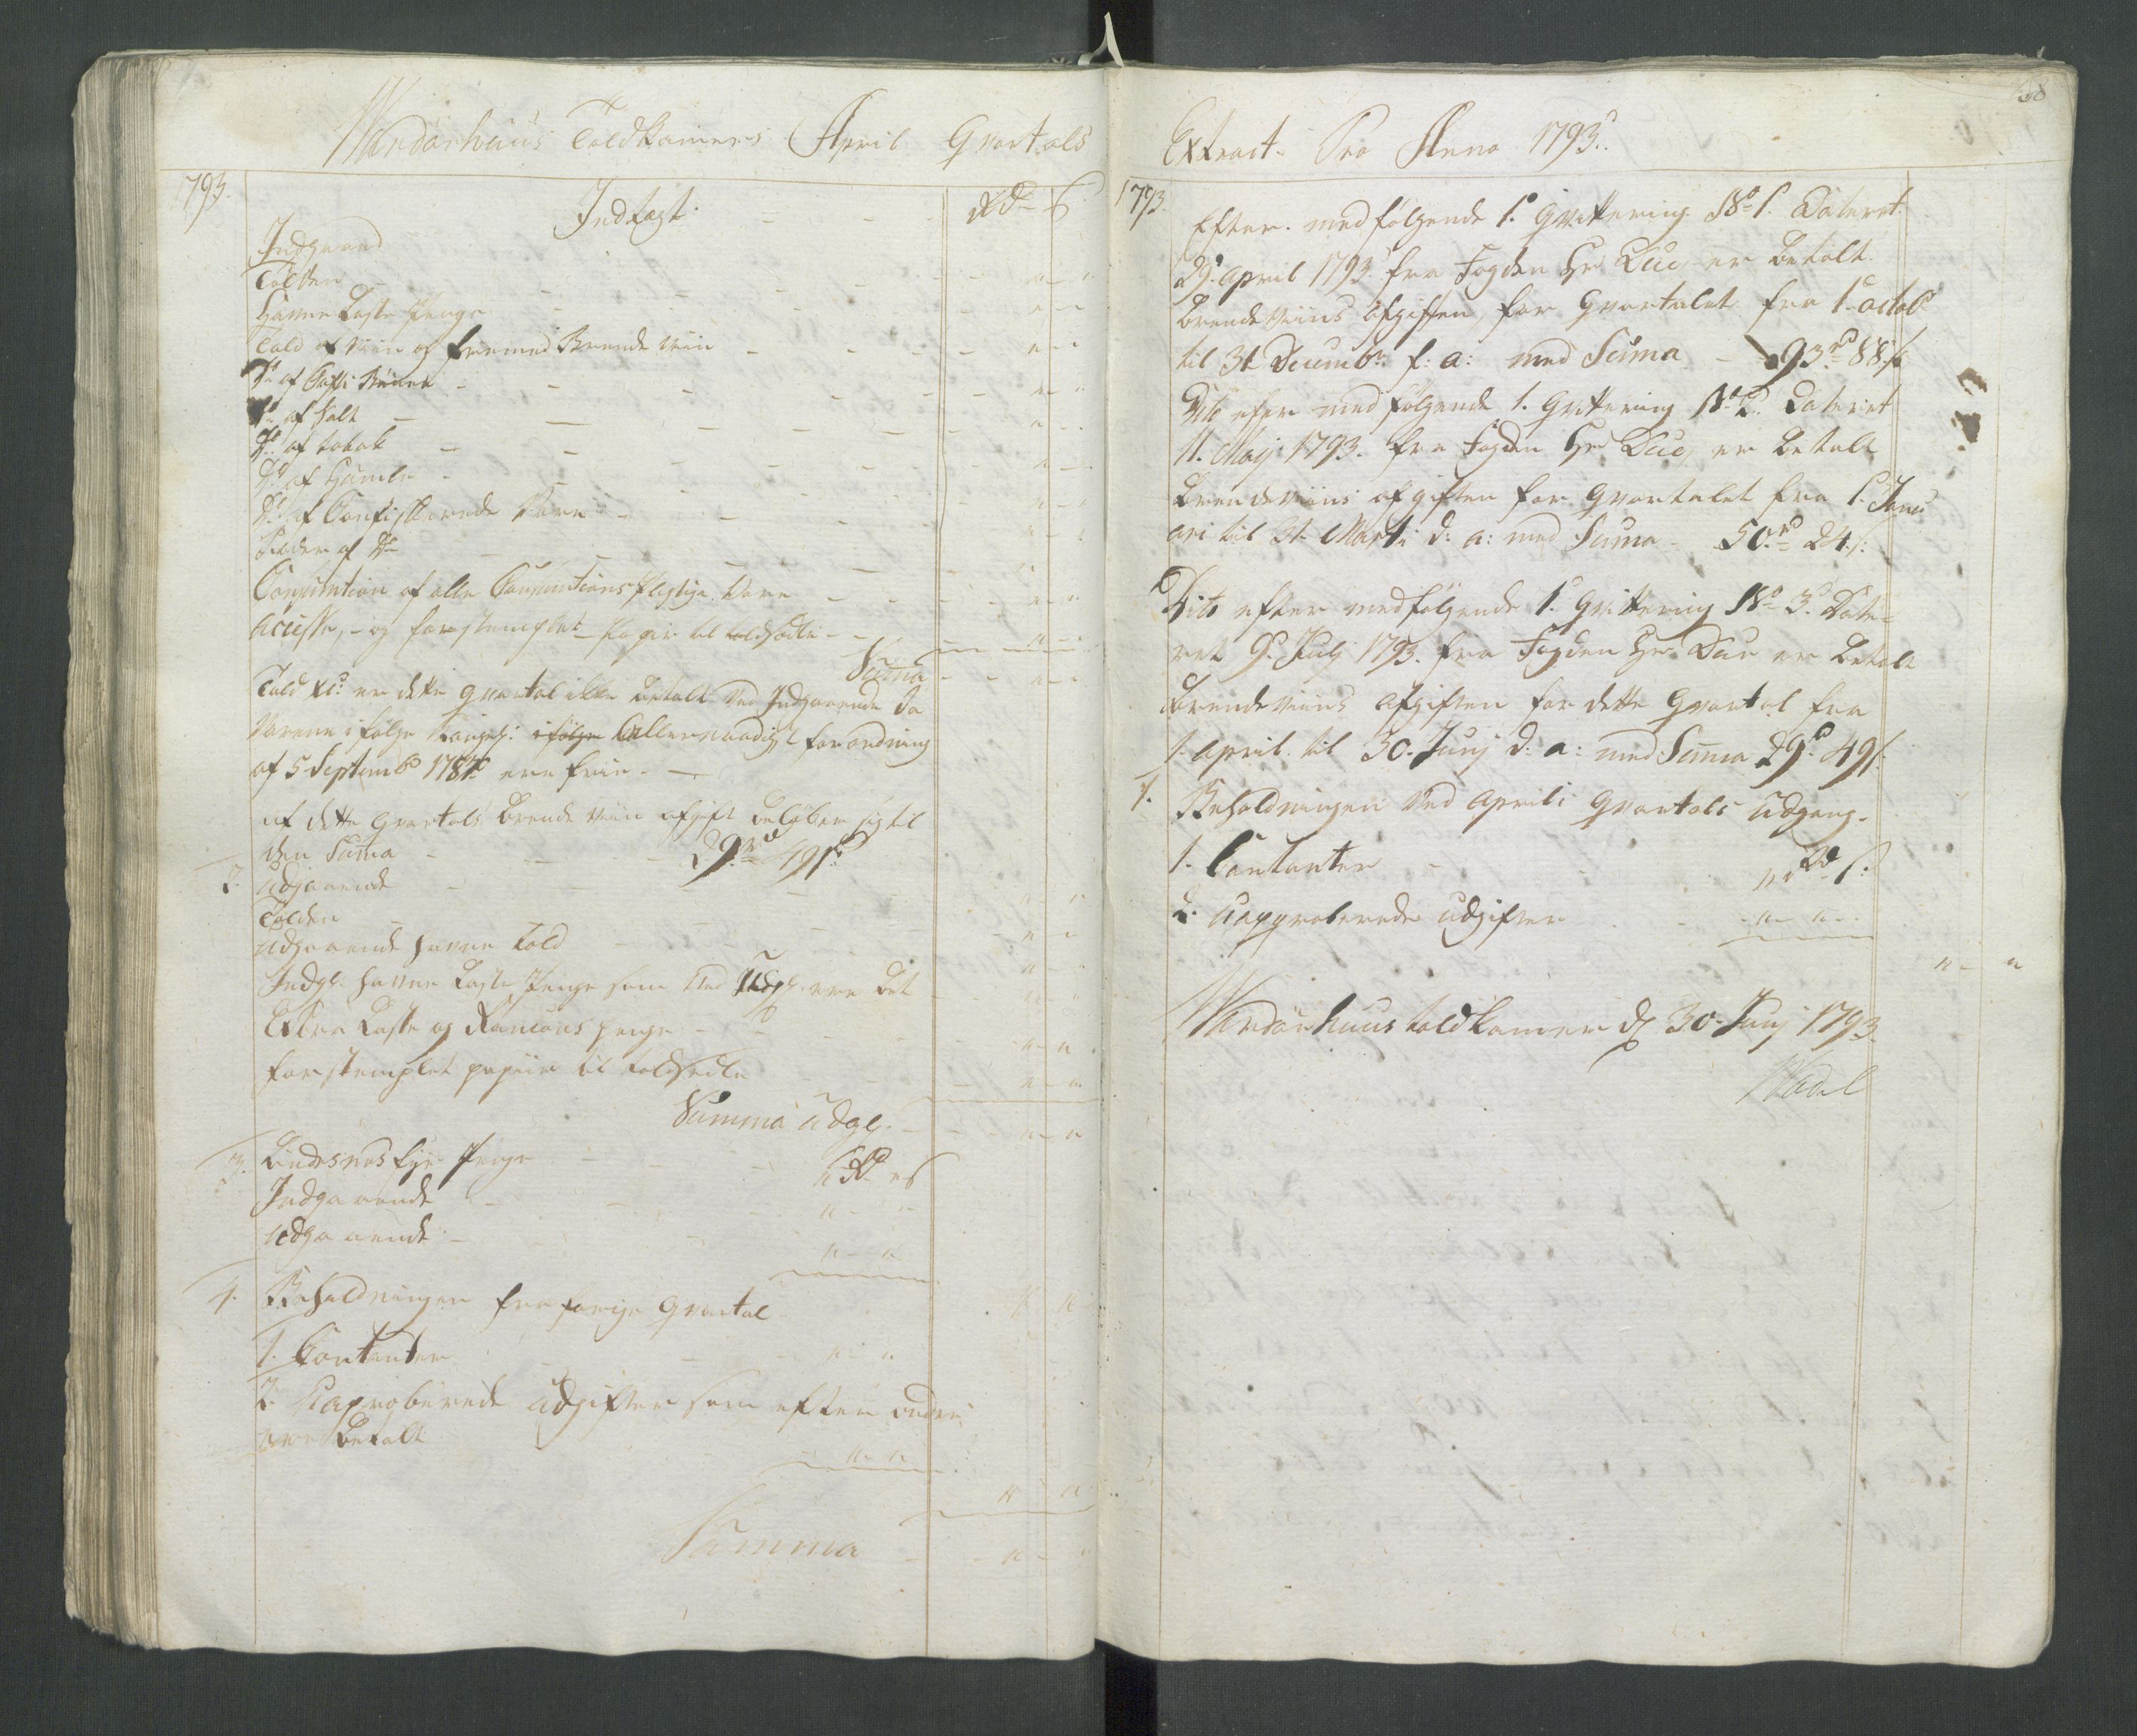 Wardøehuus Toldkamers April Qvartals
1793.
Indtægt. Rd ß
Indgaaende
Tolden " "
Havne Laste Penge " "
Told af Viin og fremmed Brende Viin " "
Do af Caffe Bønner " "
Do af Salt " "
Do af tobak " "
Do af Humle " "
Do af Confiskerede Vare " "
Do
Consumtion af alle Consumtions pligtige Vare " "
Accisse, og forstemplet Papir til toldsedler " "
Suma " "
Told etc: er dette Qvartal ikke betalt ved Indgaaende da
Varene ifølge Kongel: ifølge Allernaadigst forordning
af 5 Septembr 1787 ere frie.
af dette Qvartals Brende Viin afgift beløber sig til
den Suma 29 rd 49 ß
2. Udgaaende
Tolden " "
Udgaaende havne told " "
Indg: havne Laste Penge som ved Udg: ere bet " "
Extra Laste og Rancions penge " "
forstemplet papiir til toldsedle " "
Summa Udg: " "
3. Lindesnes fyr Penge " Rd " ß
Indgaaende " "
Udgaaende " "
4. Beholdningen fra forige Qvartal " "
1. Contanter " "
2. Uaproberede Udgifter som efter ordre
ere betalt " "
" "
Summa " "
Extract Pro Anno 1793.
1793.
Efter medfølgende 1. Qvittering No 1. Dateret
29 April 1793 fra Fogden Hr Due er betalt
Brendeviins Afgiften for Qvartalet fra 1 octobr
til 31 Decembr f: a: med Suma 93 rd 88 ß
Dito efter medfølgende 1. Qvittering No 2. Dateret
11. Maj 1793. fra Fogden Hr Due er betalt
Brendeviins afgiften for Qvartalet fra 1. Janu
ari til 31 Marti d: a: med Suma 50 rd 24 ß
Dito efter medfølgende 1. Qvittering No 3. Date-
ret 9. Julj 1793. fra Fogden Hr Due er betalt
Brendeviins Afgiften for dette Qvartal fra
1. April til 30. Junj d: a: med Suma 29 rd 49 ß
4. Beholdningen ved Aprils Qvartals Udgang.
1. Contanter " Rd " ß
2. Uapproberede Udgifter " "
" "
Wardøehuus toldkamer d 30. Junj 1793.
Wadel